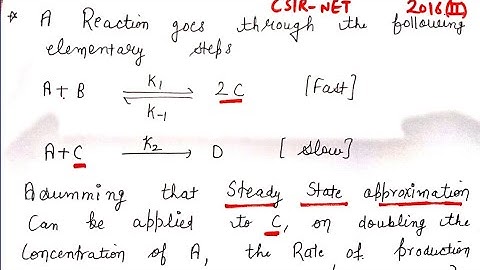 CSIR-NET 2016(II)
* A Reaction goes through the following
elementary steps
A+B K1 K-1 2C [Fast]
A+C K2 D [Slow]
Assuming that Steady State approximation
Can be applied to C, on doubling the
Concentration of A, the Rate of production